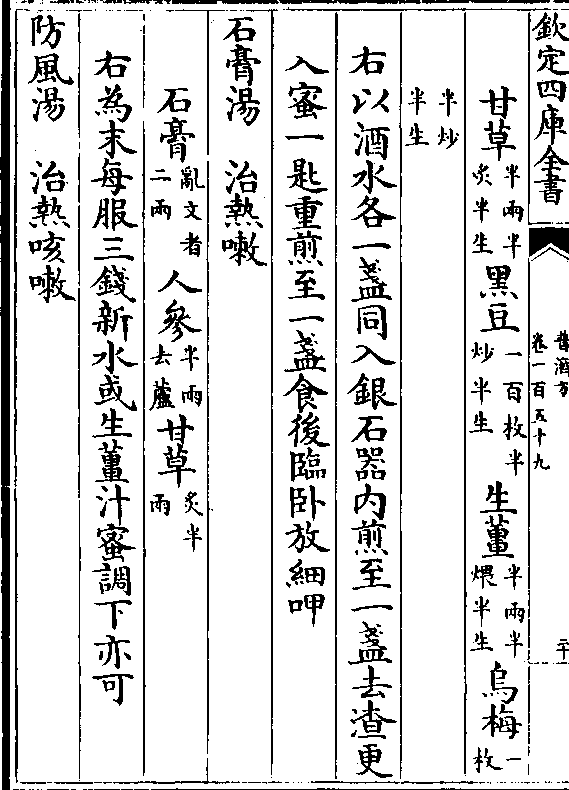 欽定四庫全書
普濟方
卷一百五十九
二十
甘草半兩半炙半生 黑豆一百枚半炒半生 生薑半兩半煨半生 烏梅一枚
半炒半生
右以酒水各一盞同入銀石器内煎至一盞去渣更
入蜜一匙重煎至一盞食後臨卧放細呷
石膏湯 治熱嗽
石膏亂文者二兩 人參半兩去蘆 甘草炙半兩
右為末每服三錢新水或生薑汁蜜調下亦可
防風湯 治熱咳嗽